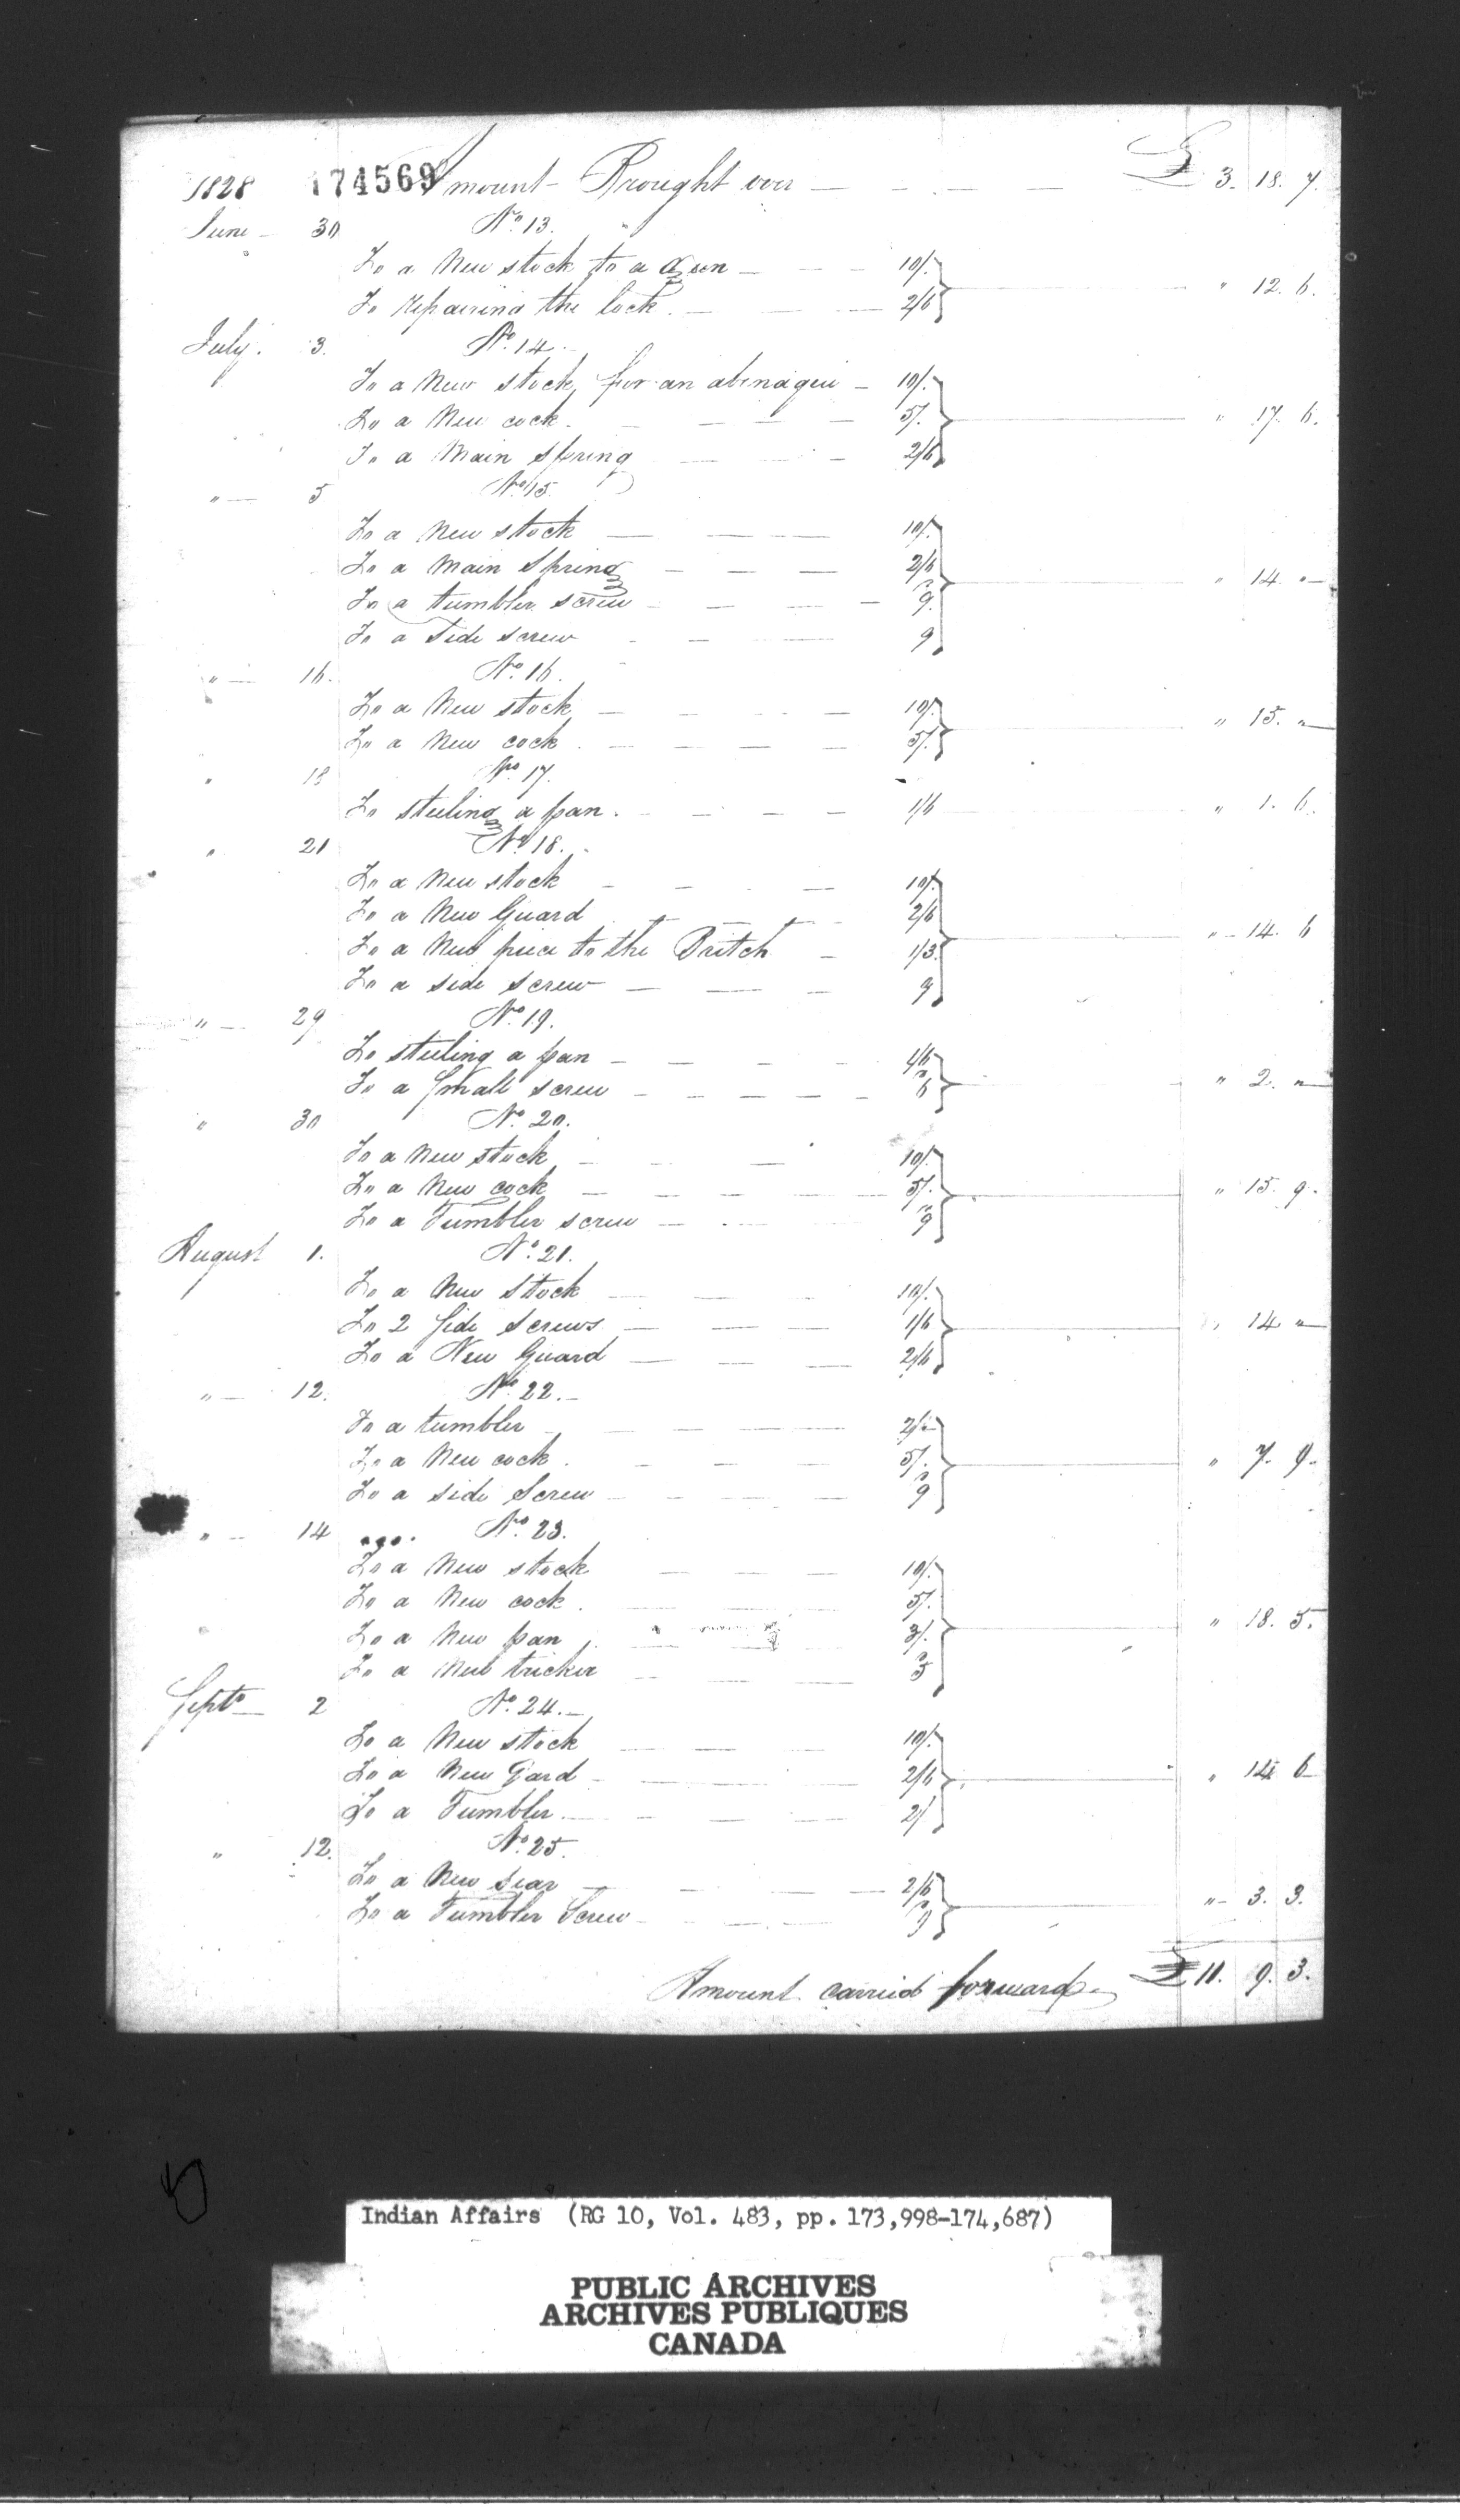 174569
1828 Amount Brought over — £ 3. 18. 7.
June — 30 No. 13.
To a New stock to a Gun — 10/.
To repairing the lock. — 2/6 " 12. 6.
July. 3. No. 14.
To a New stock, for an abenaqui — 10/.
To a New cock. — 5/. " 17. 6.
To a Main Spring — 2/6
" — 5 No. 15.
To a New stock — 10/.
To a Main Spring — 2/6 " 14. "
To a tumbler screw — " 9.
To a Side screw — 9
" — 16. No. 16.
To a New stock — 10/. " 15. "
To a New cock. — 5/.
" 18 No. 17.
To steeling a pan. — 1/6 " 1. 6.
" 21 No. 18.
To a New stock — 10/.
To a New Guard — 2/6 " 14. 6
To a New piece to the Britch — 1/3.
To a side screw — 9
" — 29 No. 19.
To steeling a pan — 1/6
To a Small screw — " 6 " 2. "
" 30 No. 20.
To a New stock — 10/.
To a New cock — 5/. " 15. 9.
To a Tumbler screw — " 9
August 1. No. 21.
To a New Stock — 10/.
To 2 Side Screws — 1/6 " 14 "
To a New Guard — 2/6
" — 12. No. 22. —
To a tumbler — 2/"
To a New cock. — 5/. " 7. 9.
To a side Screw — " 9
" — 14 No. 23.
To a New stock — 10/.
To a New cock. — 5/.
To a New pan — 3/. " 18. 5.
To a New tricker — " 5
Septr — 2 No. 24. —
To a New stock — 10/.
To a New Gard — 2/6 " 14 6
To a Tumbler. — 2/
" 12. No. 25.
To a New sear — 2/6
To a Tumbler Screw — " 9 " — 3. 3.
Amount carried forward — £ 11. 9. 3.
Indian Affairs (RG 10, Vol. 483, pp. 173,998-174,687)
PUBLIC ARCHIVES
ARCHIVES PUBLIQUES
CANADA